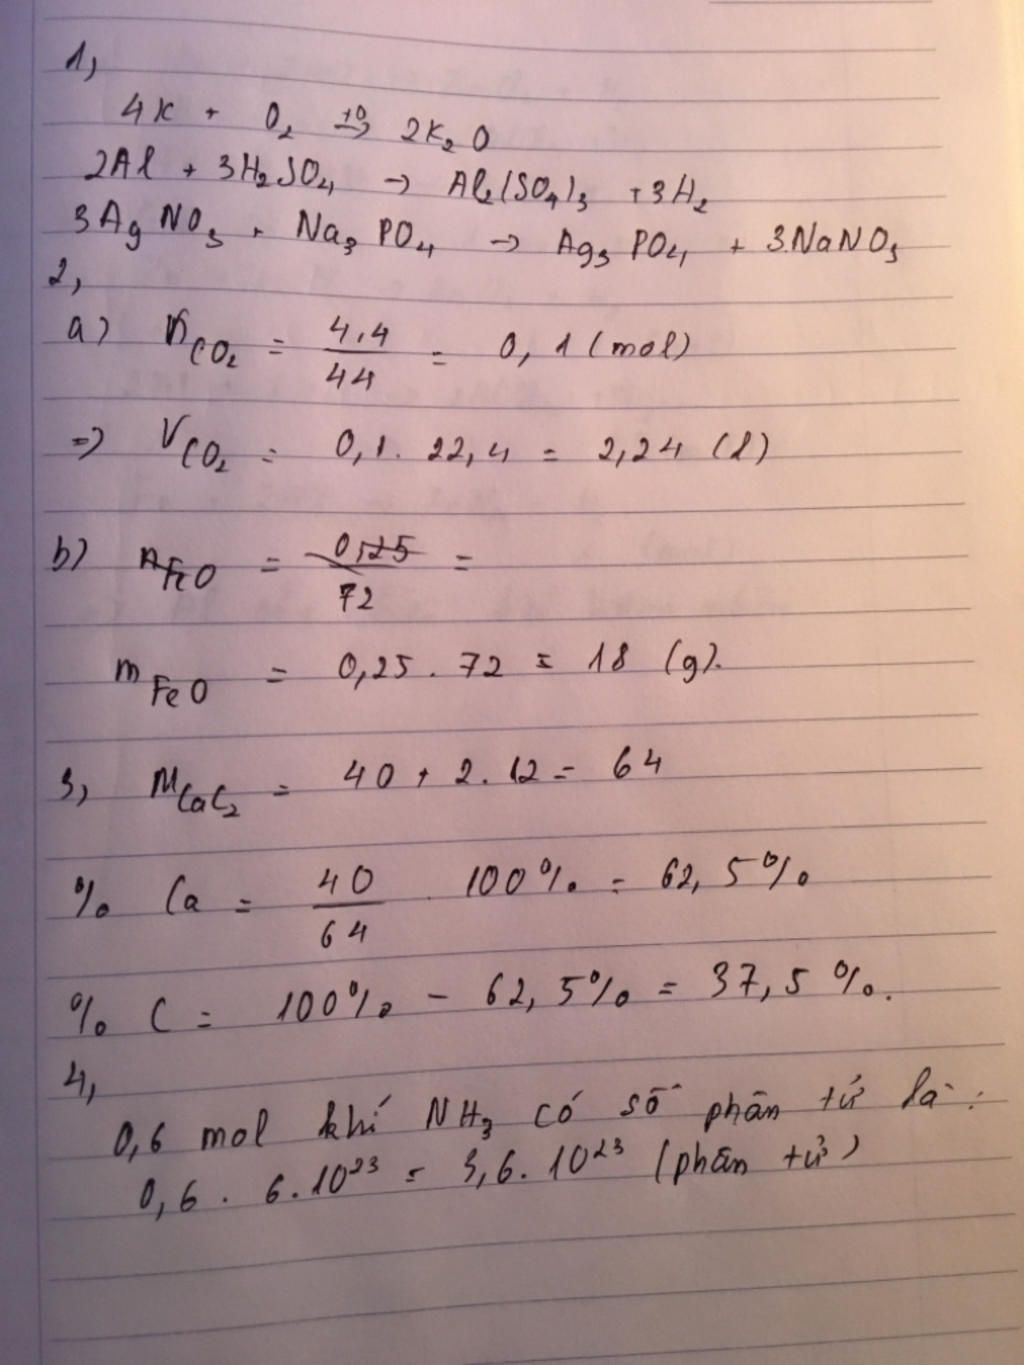 1,
4K + O₂ t⁰→ 2K₂O
2Al + 3H₂SO₄ → Al₂(SO₄)₃ + 3H₂
3AgNO₃ + Na₃PO₄ → Ag₃PO₄ + 3NaNO₃
2,
a) n CO₂ = 4,4/44 = 0,1 (mol)
=> V CO₂ = 0,1 . 22,4 = 2,24 (l)
b) n FeO = 0,25/72 =
m FeO = 0,25 . 72 = 18 (g).
3, M CaC₂ = 40 + 2.12 = 64
% Ca = 40/64 . 100% = 62,5%
% C = 100% - 62,5% = 37,5%.
4,
0,6 mol khí NH₃ có số phân tử là:
0,6 . 6.10²³ = 3,6.10²³ (phân tử)